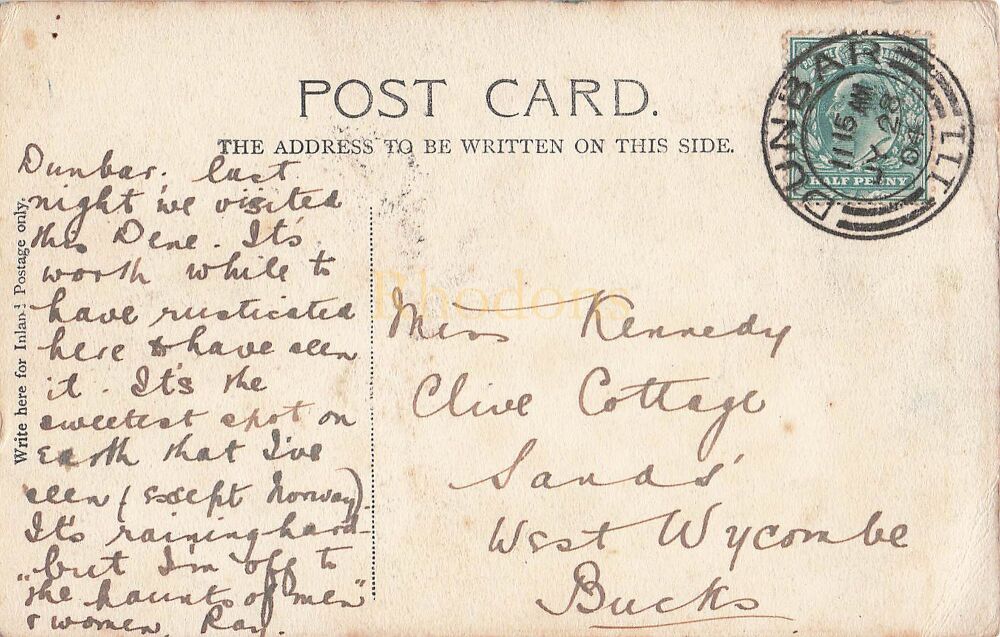 POST CARD.
THE ADDRESS TO BE WRITTEN ON THIS SIDE.
Write here for Inland Postage only.
Dunbar. last
night we visited
this Dene. It's
worth while to
have rusticated
here & have seen
it. It's the
sweetest spot on
Earth that I've
seen (except Norway).
It's raining hard
"but I'm off to
the haunts of men"
& women. Ray.
Miss Kennedy
Clive Cottage
Sands
West Wycombe
Bucks
DUNBAR
11 15 AM
JY 28
04
HALF PENNY
Rhodons